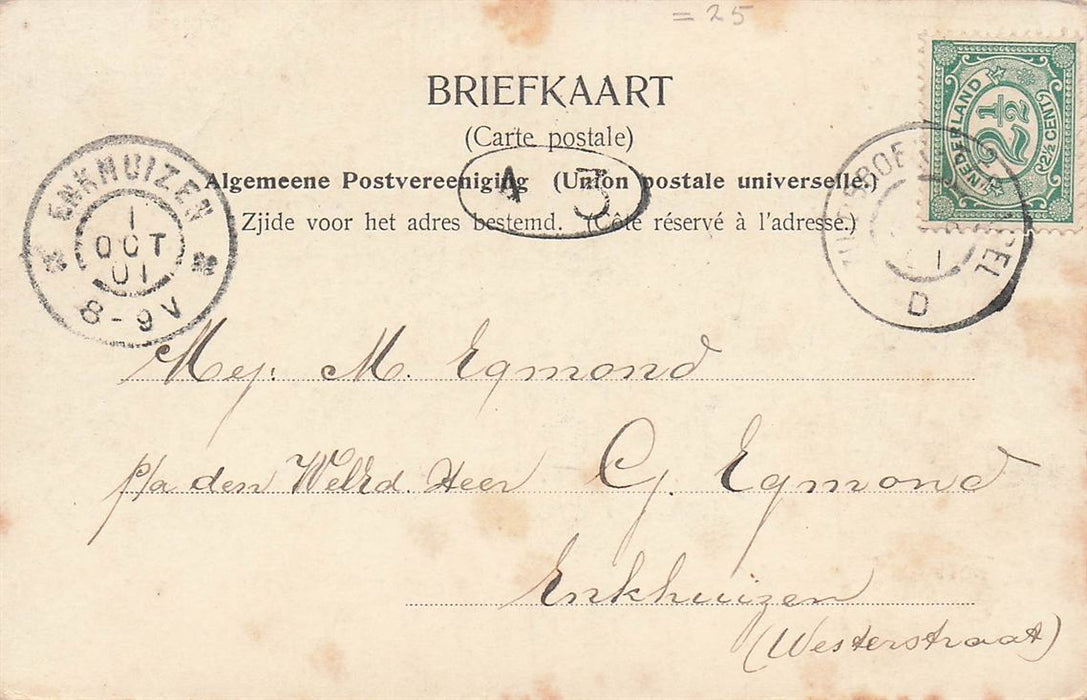 = 25
BRIEFKAART
(Carte postale)
Algemeene Postvereeniging (Union postale universelle.)
Zijde voor het adres bestemd. (Côté réservé à l'adresse.)
ENKHUIZEN
1
OCT
01
8-9V
A 5
NEDERLAND
2½
(2½ CENT)
D
Mej: M. Egmond
p/a den Welrd. Heer G. Egmond
Enkhuizen
(Westerstraat)